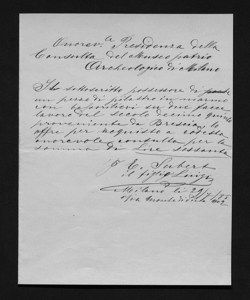 Onorev. Presidenza della
Consulta del Museo patrio
Archeologico di Milano
Il sottoscritto possessore di
un pezzo di pilastro in marmo
con bassorilievi su due facce
lavoro del secolo decimo quinto
proveniente da Brescia, lo
offre per acquisto a codesta
onorevole consulta per la
somma di Lire sessanta
Subert
il figlio Luigi
Milano li 29